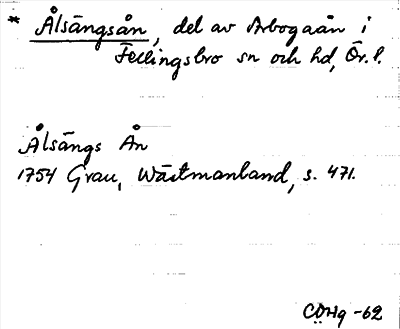 * Ålsängsån, del av Arbogaån i
Fellingsbro sn och hd, Ör. l.
Ålsängs Ån
1754 Grau, Wästmanland, s. 471.
CDHg -62